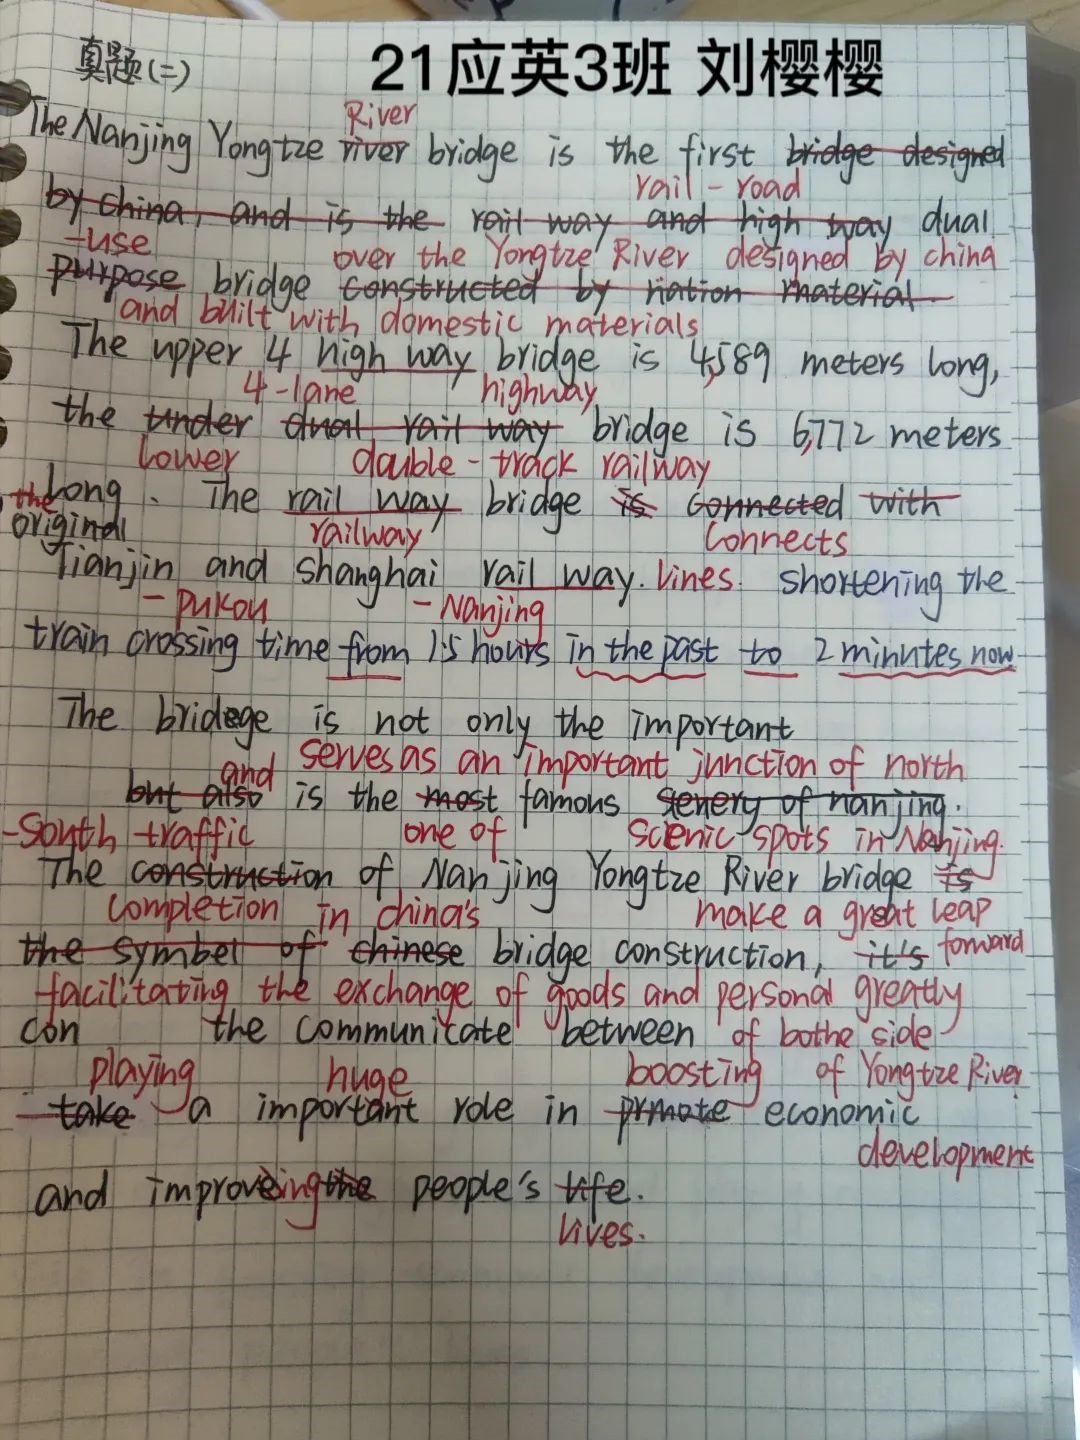 真题(二)
21应英3班 刘樱樱
River
The Nanjing Yongtze river bridge is the first bridge designed
rail-road
by china, and is the rail way and high way dual
-use over the Yongtze River designed by china
purpose bridge constructed by nation material
and built with domestic materials
The upper 4 high way bridge is 4,589 meters long,
4-lane highway
the under dual rail way bridge is 6,772 meters
lower double-track railway
the Long. The rail way bridge is connected with
original railway connects
Tianjin and shanghai rail way. lines. shortening the
-pukou -Nanjing
train crossing time from 1.5 hours in the past to 2 minutes now
The bridege is not only the important
and serves as an important junction of north
but also is the most famous senery of nanjing.
-south traffic one of scienic spots in Nanjing.
The construction of Nanjing Yongtze River bridge is
completion in china's make a great leap
the symbel of chinese bridge construction, it's forward
facilitating the exchange of goods and personal greatly
con the communicate between of bothe side
playing huge boosting of Yongtze River
take a important role in prmote economic
development
and improveing the people's life.
lives.